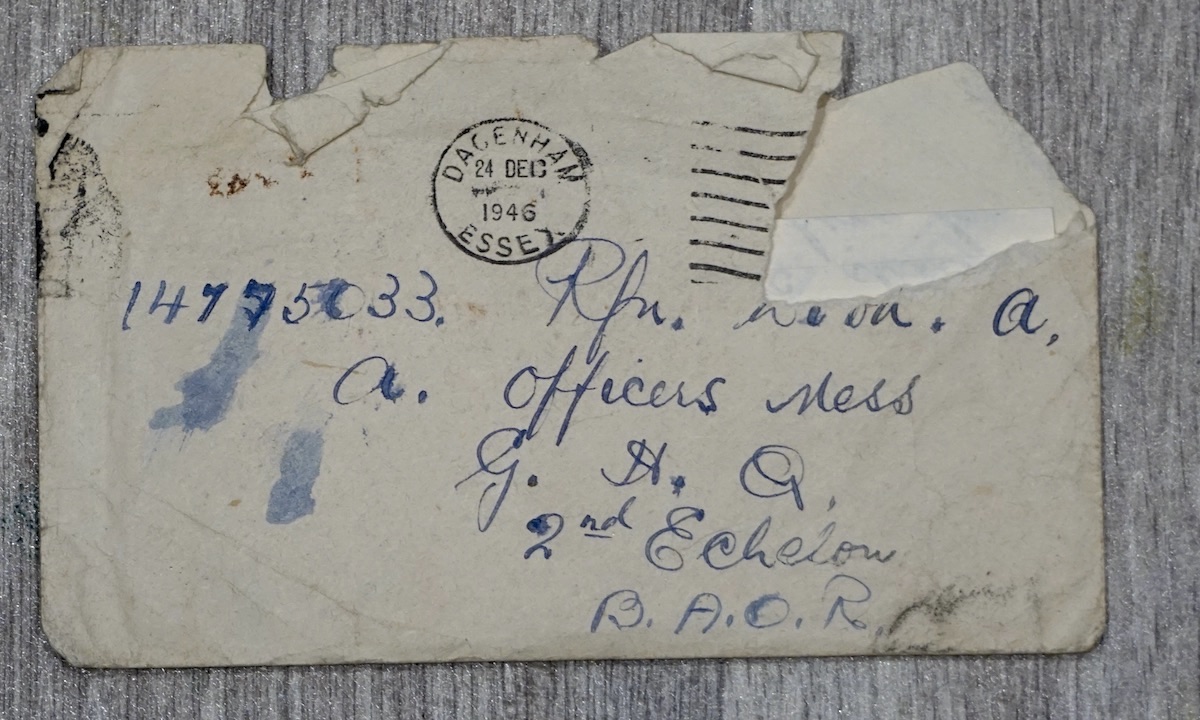 DAGENHAM
24 DEC
1946
ESSEX
14775033. Rfn. A,
A. Officers Mess
G. H. Q.
2nd Echelon
B. A. O. R.